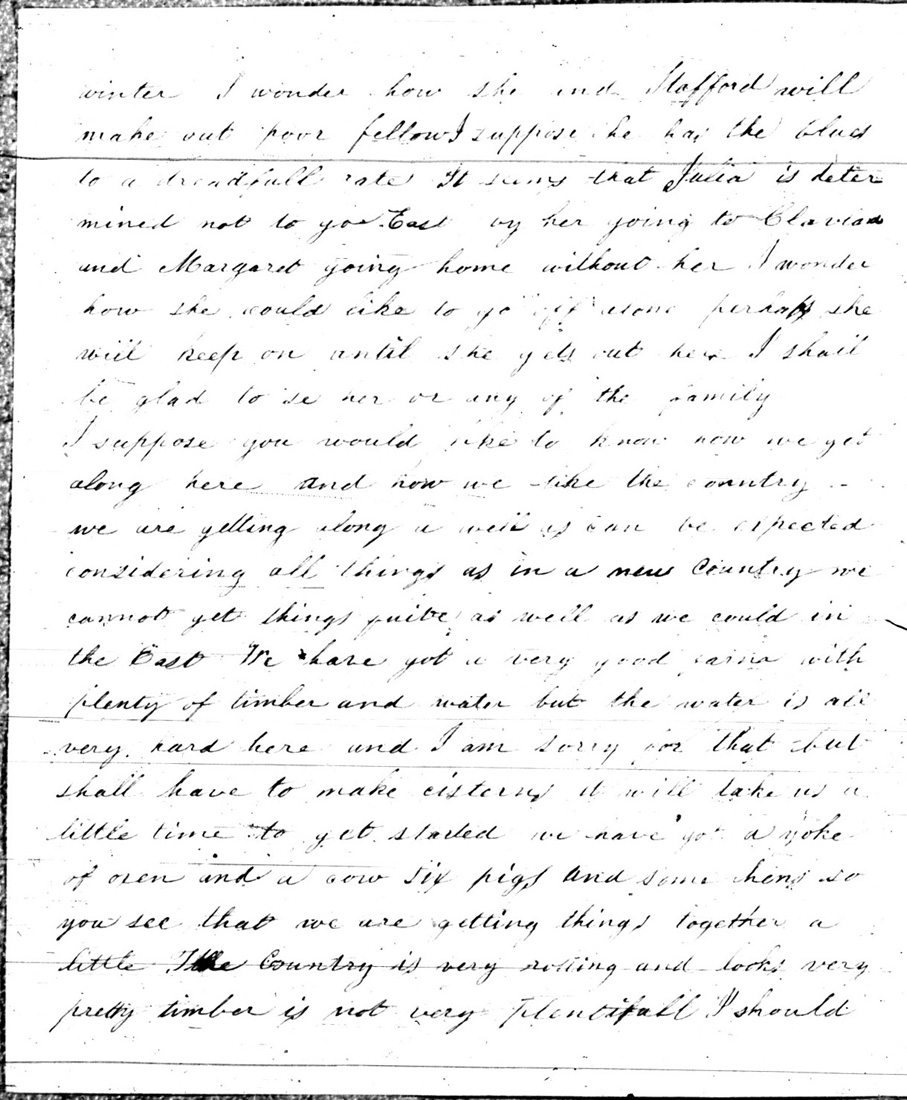 winter I wonder how she and Stafford will
make out poor fellow I suppose he has the blues
to a dreadfull rate It seems that Julia is deter
mined not to go East by her going to
and Margaret going home without her I wonder
how she could like to go off alone perhaps she
will keep on until she gets out here I shall
be glad to se her or any of the family
I suppose you would like to know how we get
along here and how we like the country
we are getting along a well as can be expected
considering all things as in a new Country we
cannot get things quite as well as we could in
the East We have got a very good farm with
plenty of timber and water but the water is all
very hard here and I am sorry for that but
shall have to make cisterns it will take us a
little time to get started we have got a yoke
of oxen and a cow six pigs and some hens so
you see that we are getting things together a
little The Country is very rolling and looks very
pretty timber is not very plentifull I should